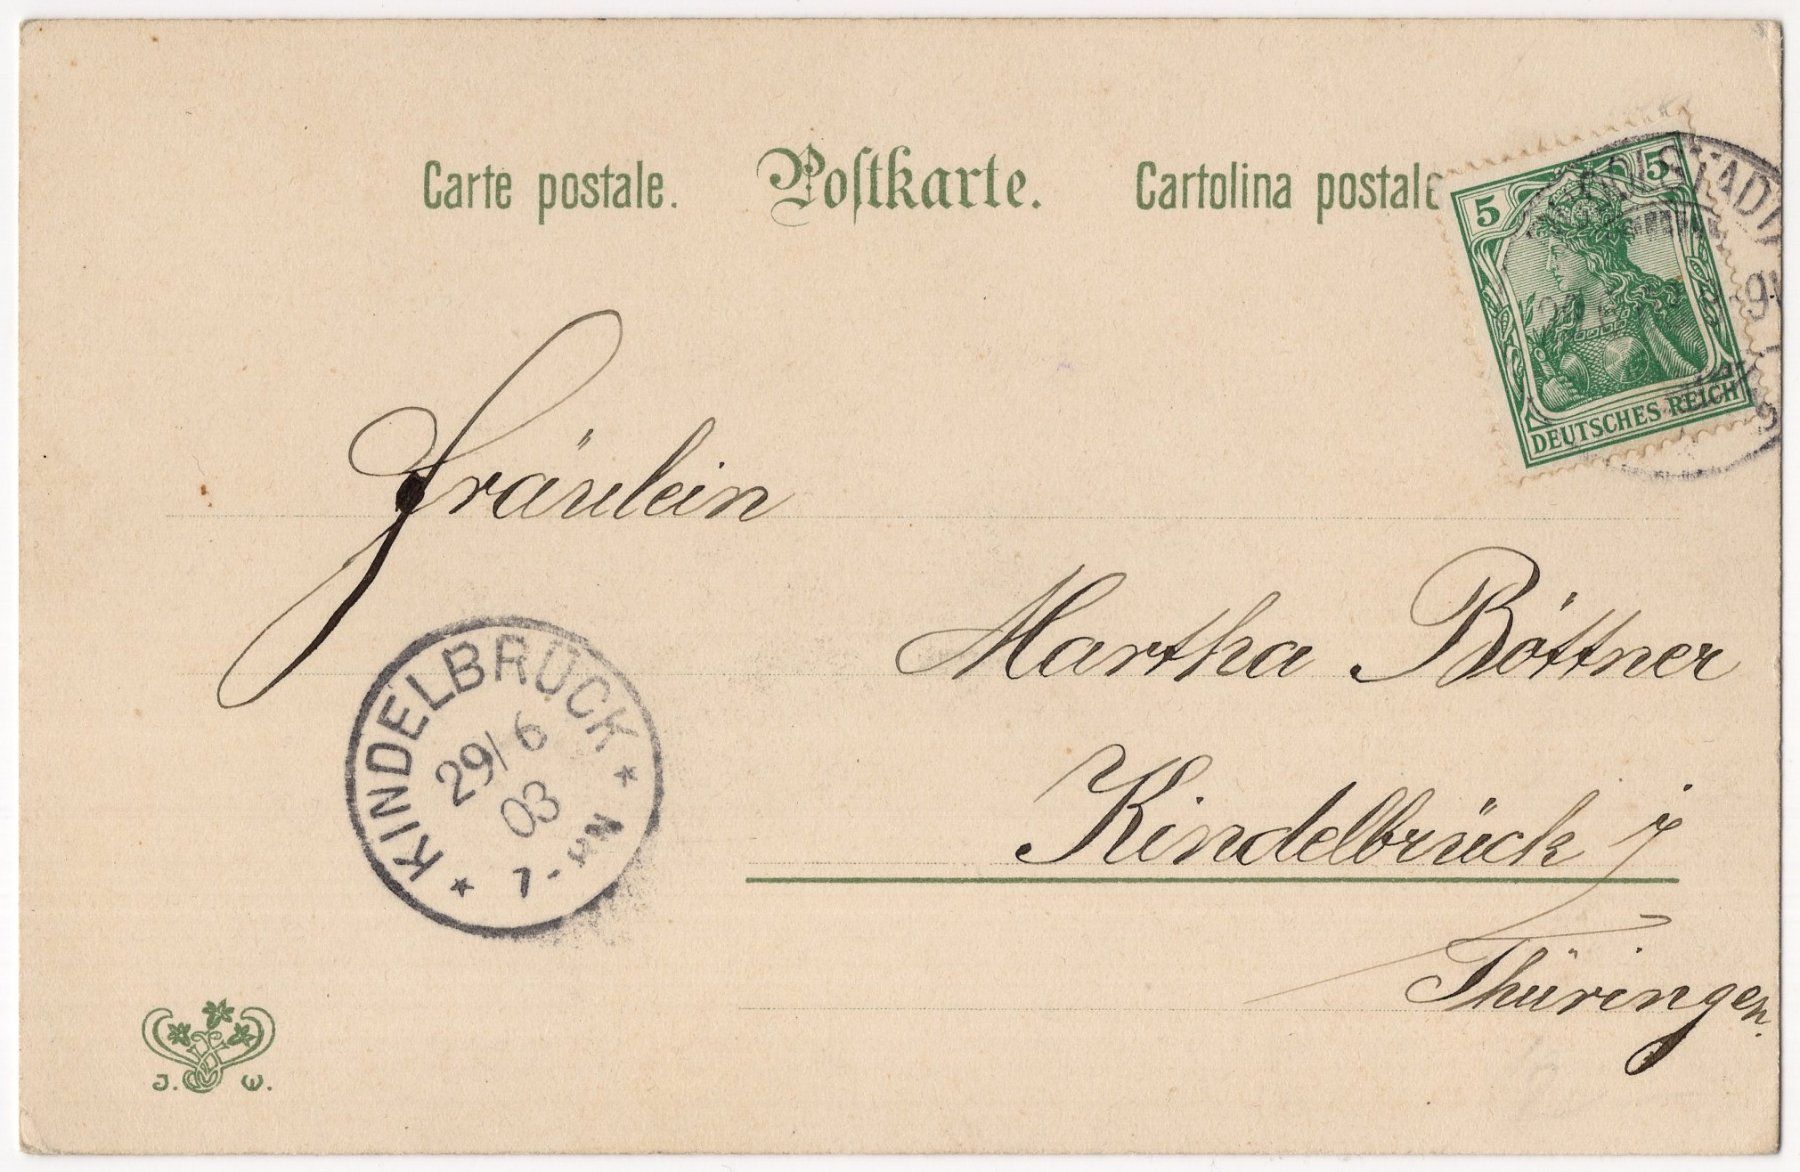 Carte postale. Postkarte. Cartolina postale
5 5
DEUTSCHES REICH
Fräulein
Martha Böttner
Kindelbrück i/
Thüringen.
KINDELBRÜCK
29/6
03
7-8N
J. W.